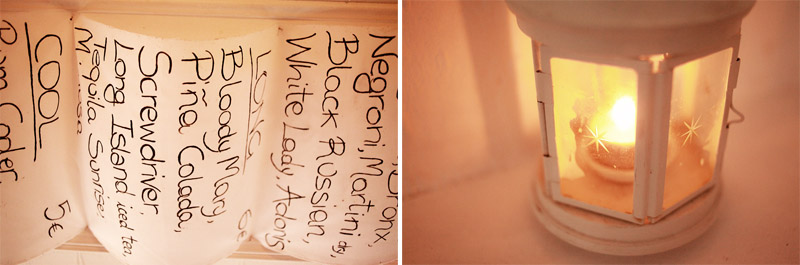 Negroni, Martini dry,
Black Russian,
White Lady, Adonis
LONG 6€
Bloody Mary,
Piña Colada,
Screwdriver,
Long Island iced tea,
Tequila Sunrise,
COOL 5€
Rum Cooler,